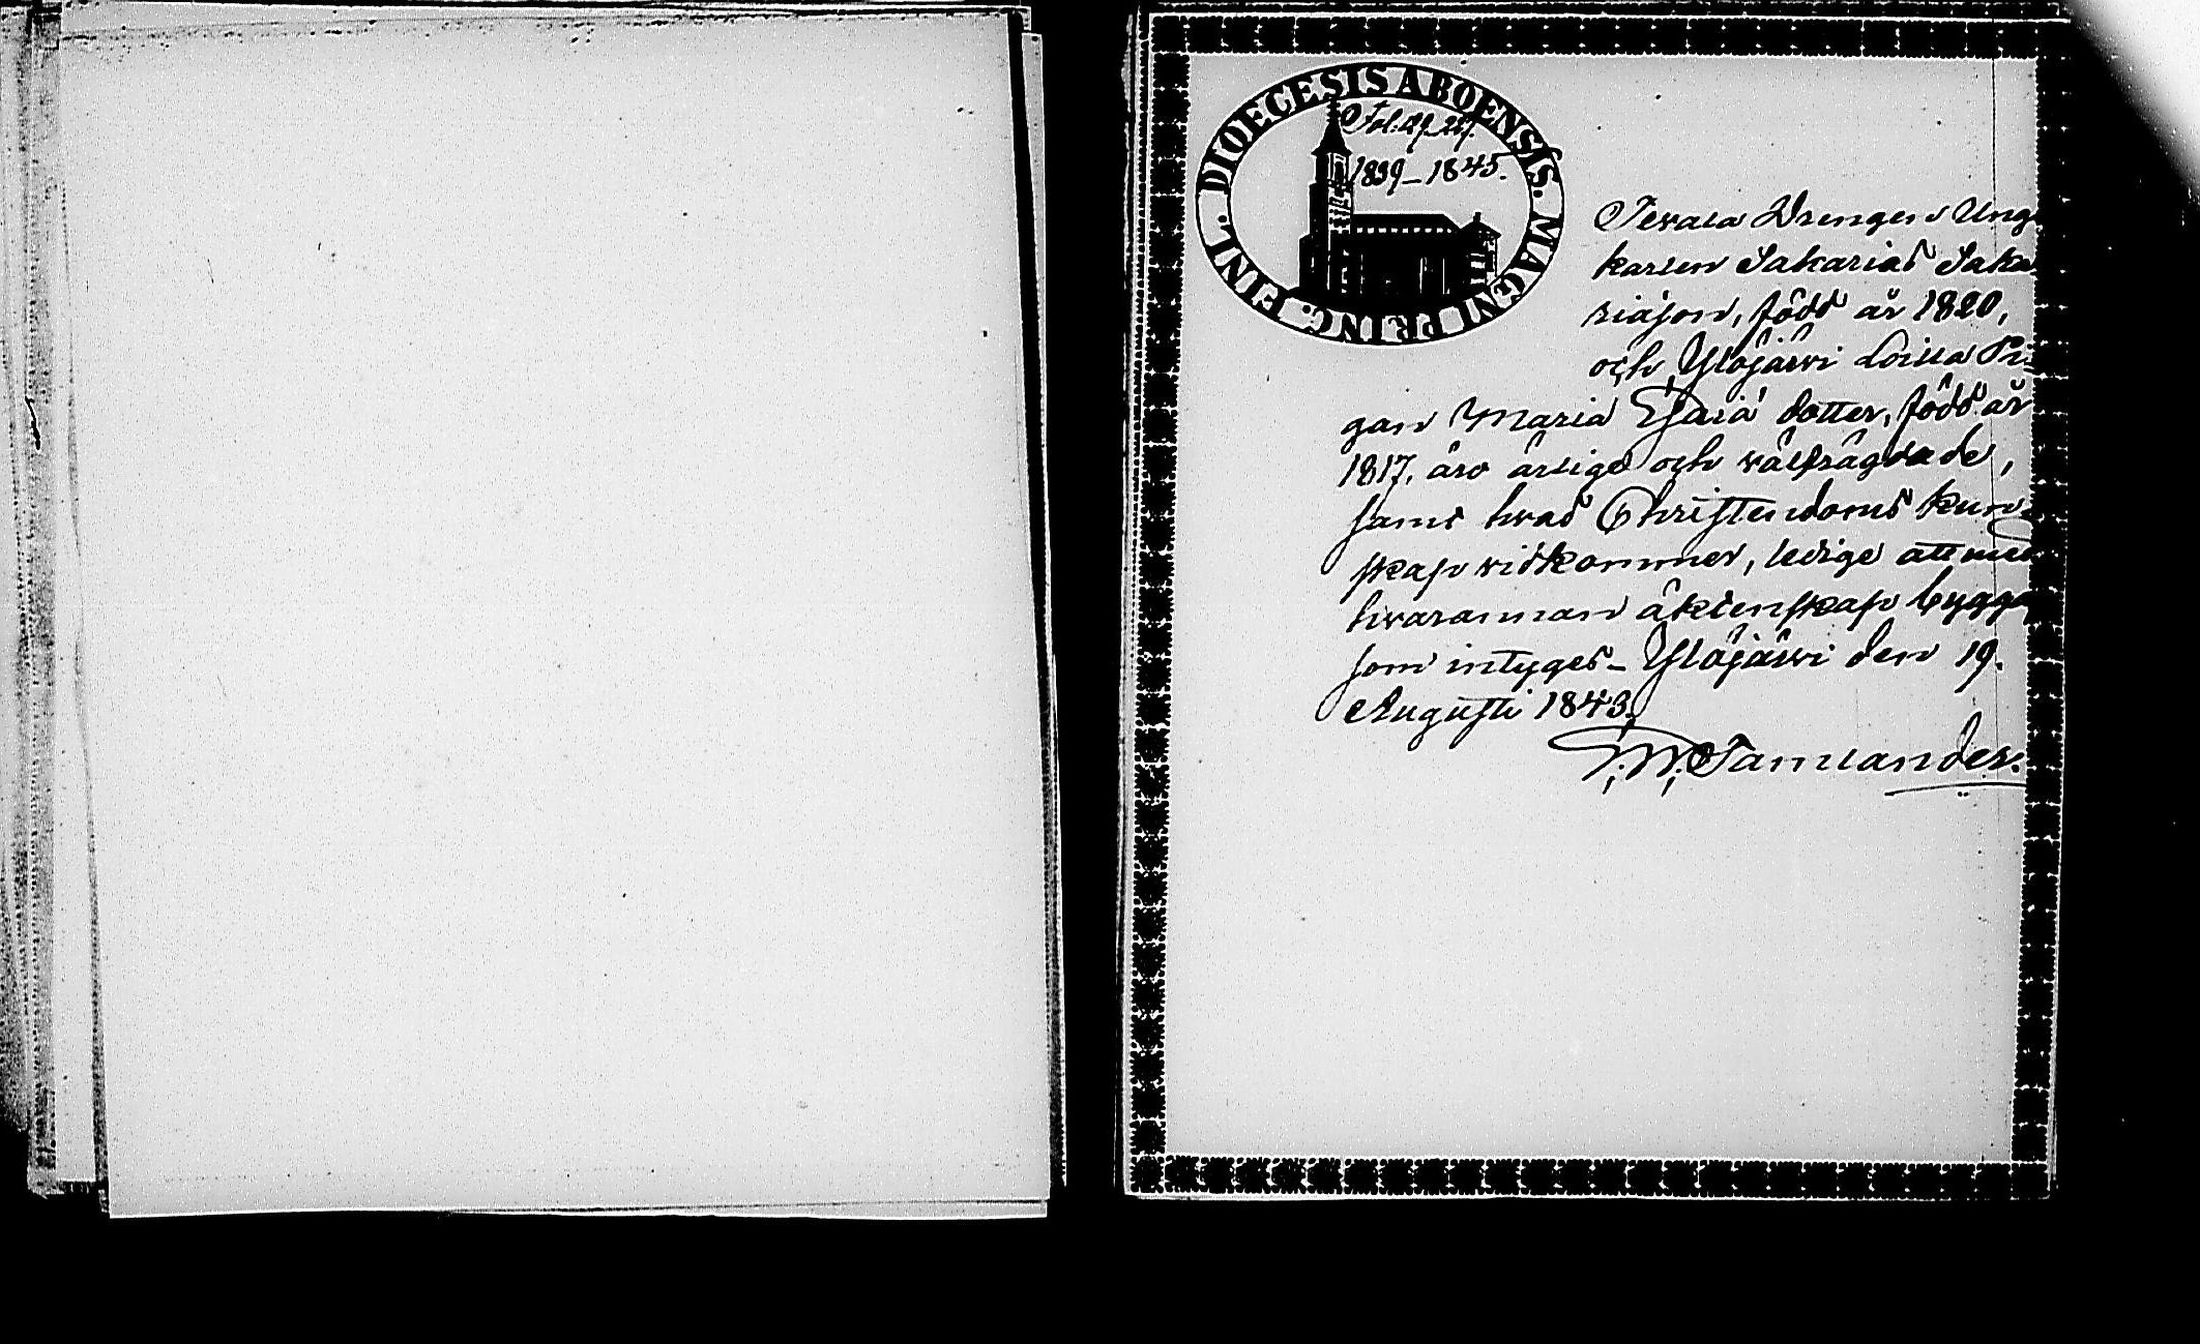 DIOECESIS ABOENSIS. MAGNI PRINC. FINL.
Fol. 27.
1839–1845.
Drengen Ung
karlen Sakarias Saka
riasson, född år 1820,
och Ylöjärvi Pi
gan Maria Esaia dotter, född år
1817, äro ärlige och välfrägdade,
samt hvad Christendoms kun
skap vidkommer, ledige att med
hvarannan äktenskap bygga
som intyges – Ylöjärvi den 19.
Augusti 1843.
Tamlander.